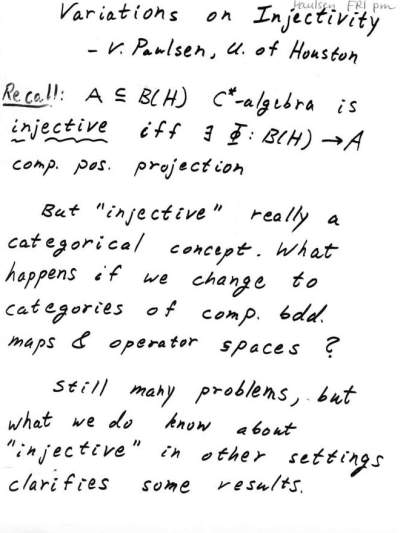 Paulsen FRI pm
Variations on Injectivity
- V. Paulsen, U. of Houston
Recall: A ⊆ B(H) C*-algebra is
injective iff ∃ Φ: B(H) → A
comp. pos. projection
But "injective" really a
categorical concept. What
happens if we change to
categories of comp. bdd.
maps & operator spaces ?
Still many problems, but
what we do know about
"injective" in other settings
clarifies some results.